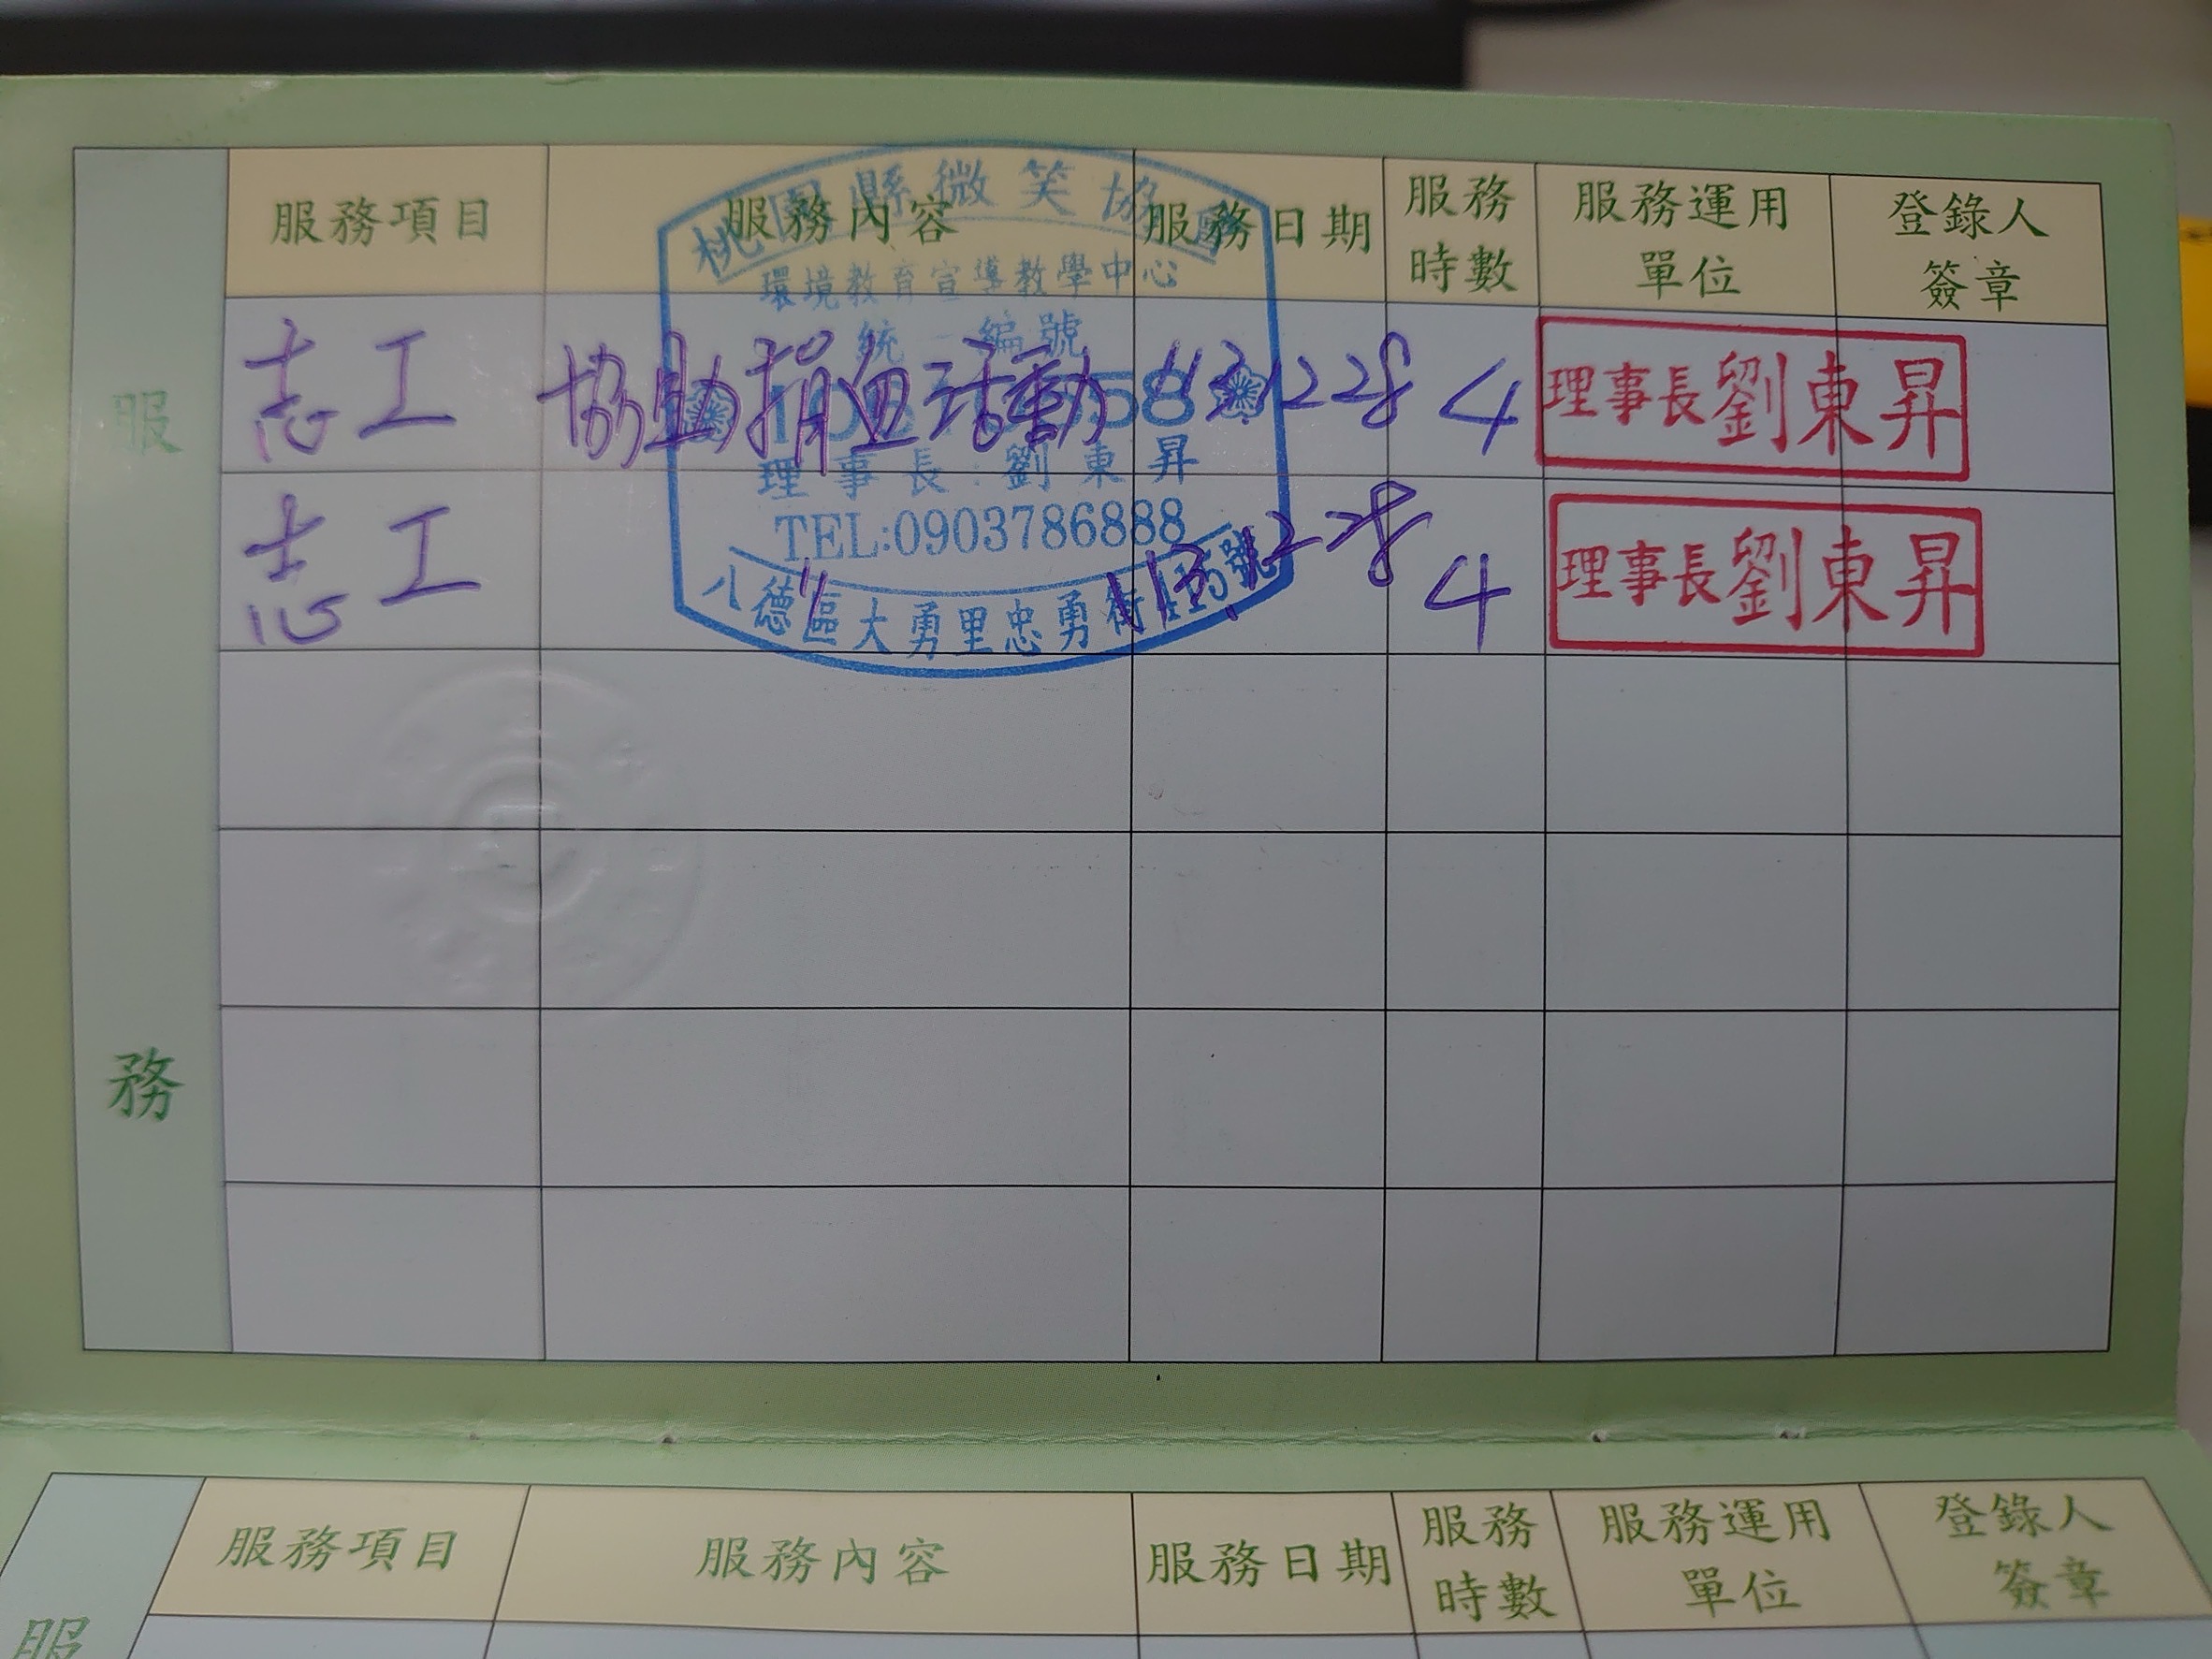 服務項目 服務內容 服務日期 服務時數 服務運用單位 登錄人簽章
桃園縣微笑協會
環境教育宣導教學中心
統一編號
志工 協助捐血活動 4 理事長劉東昇
理事長:劉東昇
TEL:0903786888
志工 〃 4 理事長劉東昇
八德區大勇里忠勇街
服
務
服務項目 服務內容 服務日期 服務時數 服務運用單位 登錄人簽章
服